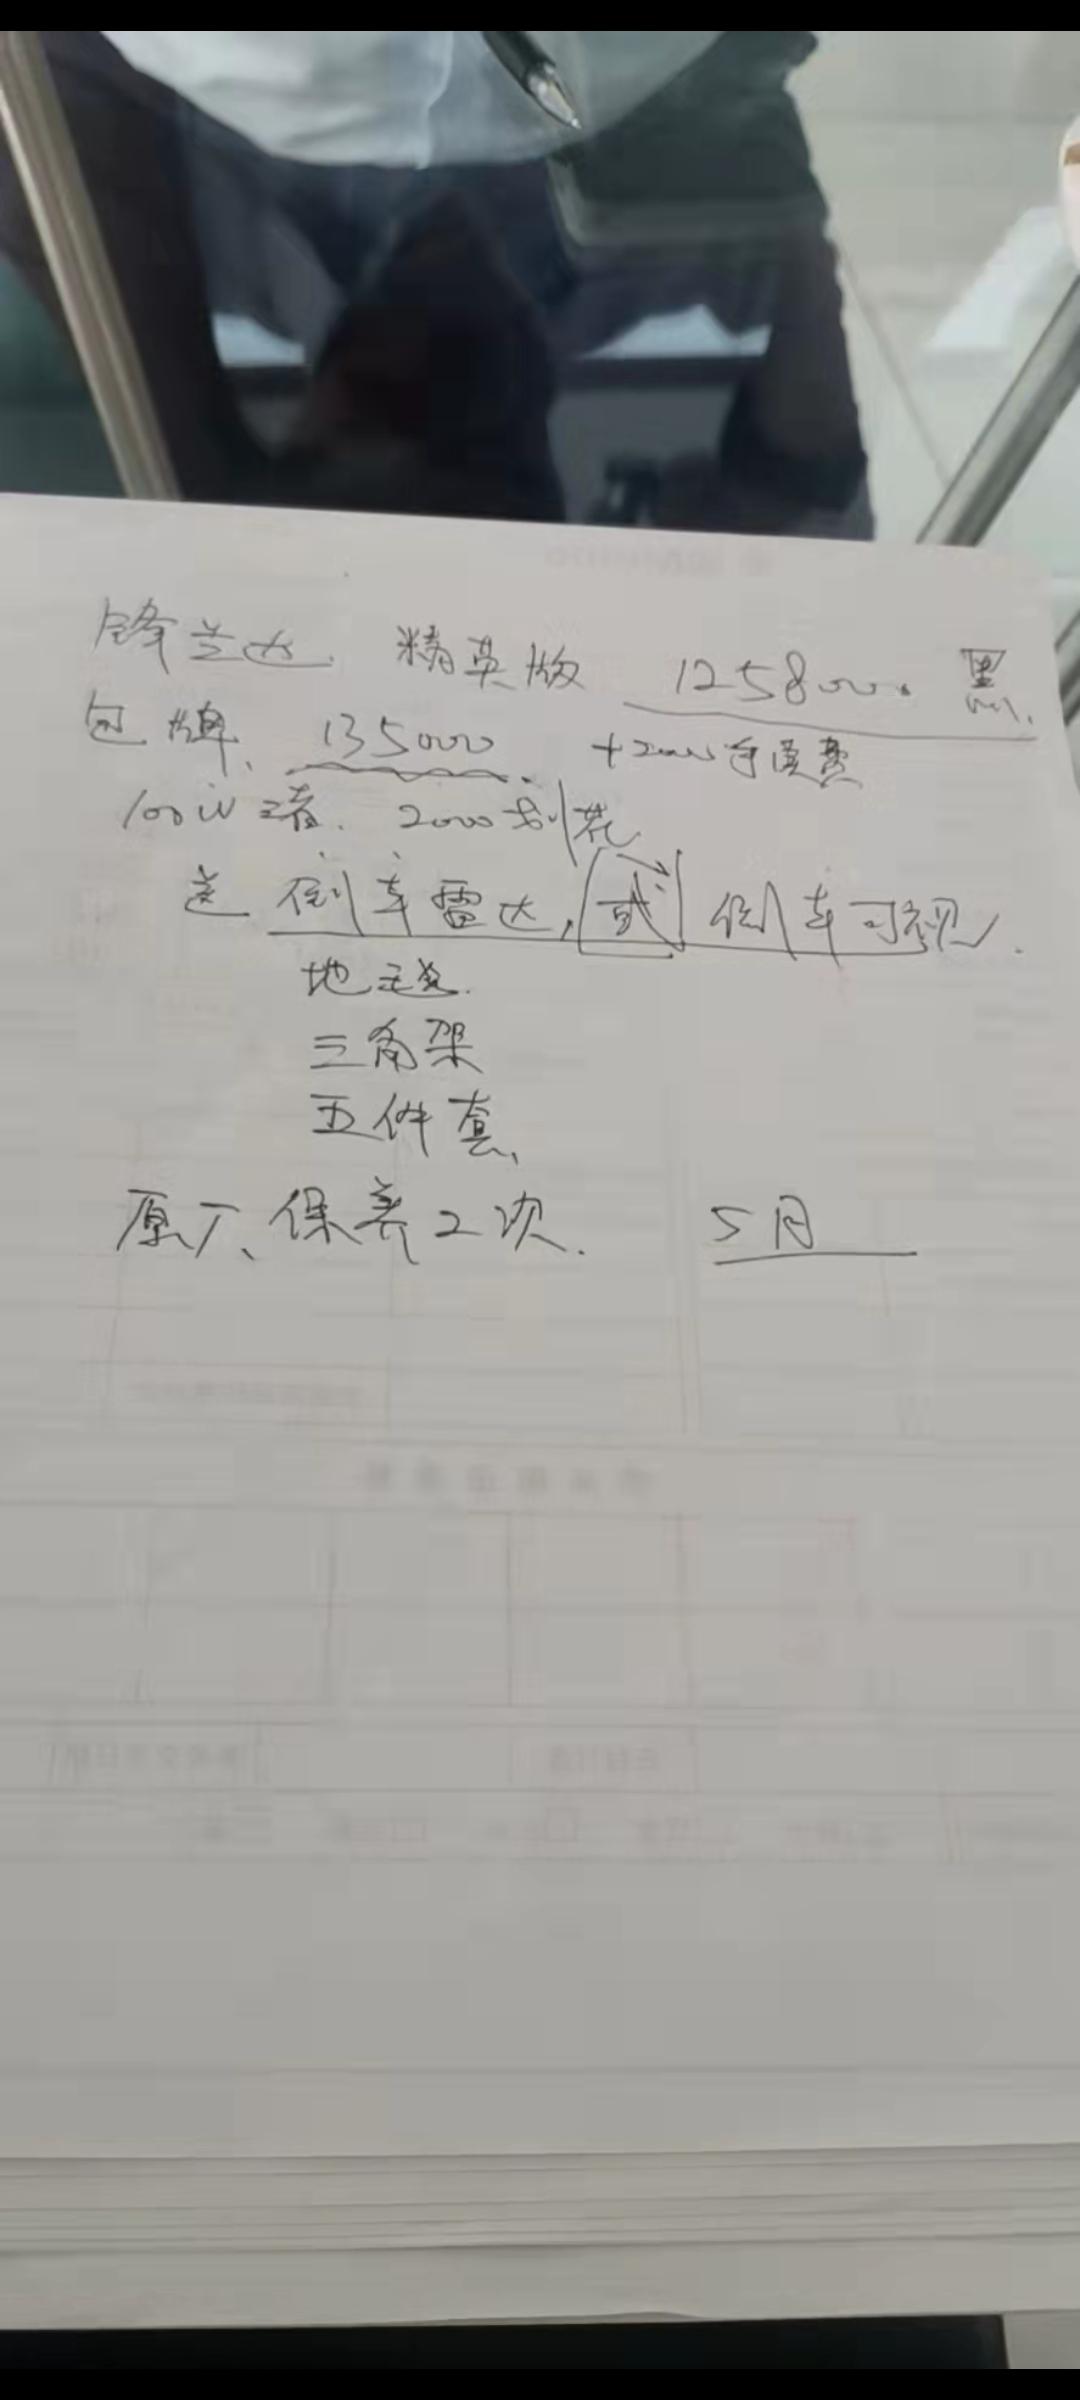 锋兰达. 精英版 125800. 黑
包牌、135000 +2000手续费
100W三者. 2000划花
送 倒车雷达, 或 倒车可视.
地毯.
三角架
五件套、
原厂、保养2次. 5月